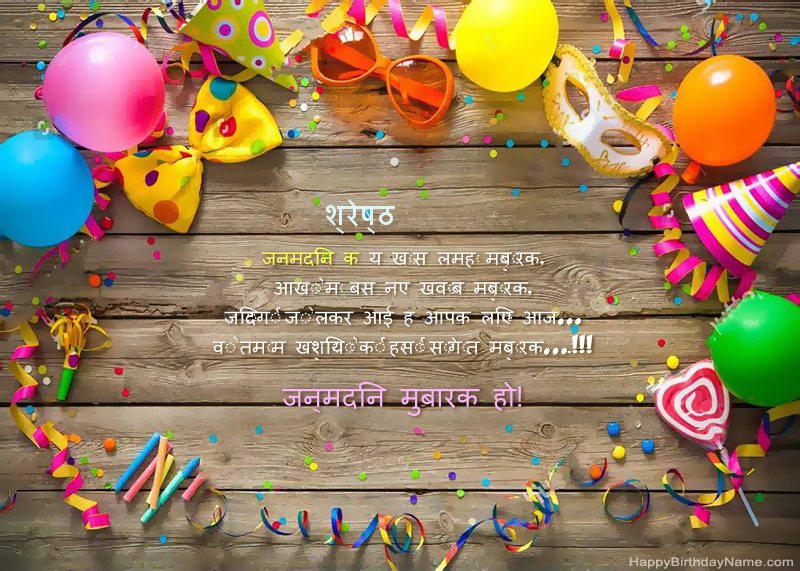 श्रेष्ठ
जनमदिन क य खास लमह मबुारक,
आखों म बस नए खवाब मबुारक,
जिंदगी जो लेकर आई ह आपक लिए आज...
वो तमाम खशियों की हसीं सौगात मबुारक...!!!
जन्मदिन मुबारक हो!
HappyBirthdayName.com